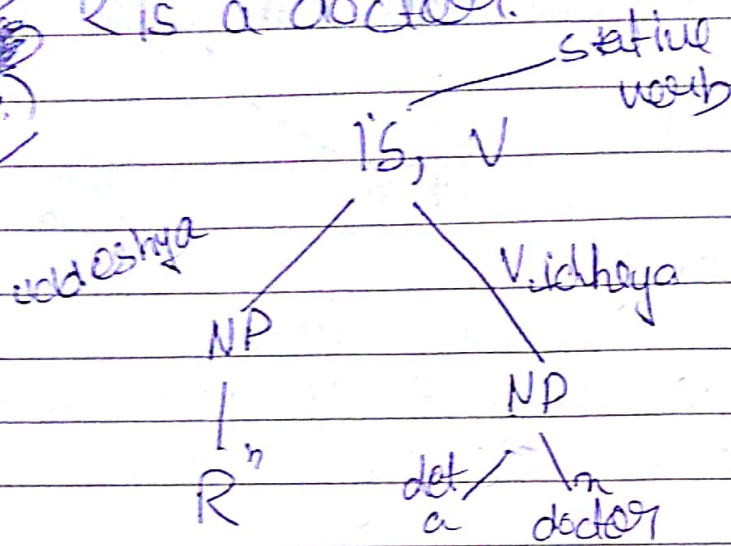 R is a doctor.
stative
verb
is, V
uddeshya
Vidheya
NP
NP
n
R
det
n
a
doctor